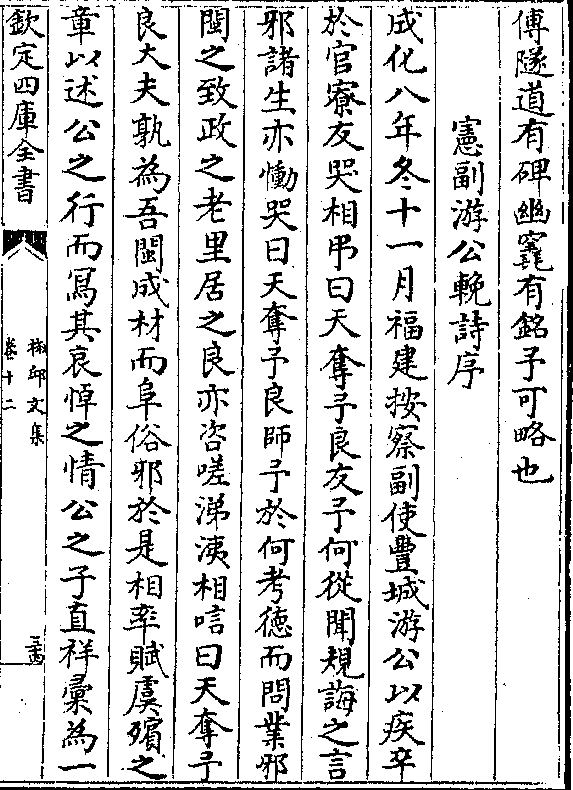 傅隧道有碑幽竁有銘予可略也
憲副游公輓詩序
成化八年冬十一月福建按察副使豐城游公以疾卒
於官寮友哭相弔曰天奪予良友予何從聞規誨之言
邪諸生亦慟哭曰天奪予良師予於何考德而問業邪
閩之致政之老里居之良亦咨嗟涕洟相唁曰天奪予
良大夫孰為吾閩成材而阜俗邪於是相率賦虞殯之
章以述公之行而寫其哀悼之情公之子直祥彚為一
欽定四庫全書
椒邱文集
卷十二
三十四